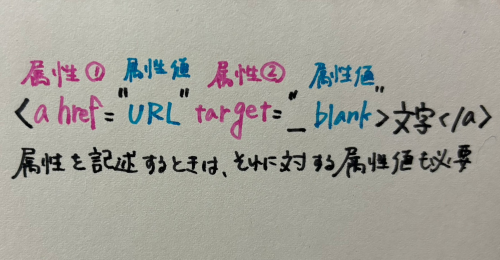 属性① 属性値 属性② 属性値
<a href="URL" target="_blank">文字</a>
属性を記述するときは、それに対する属性値も必要